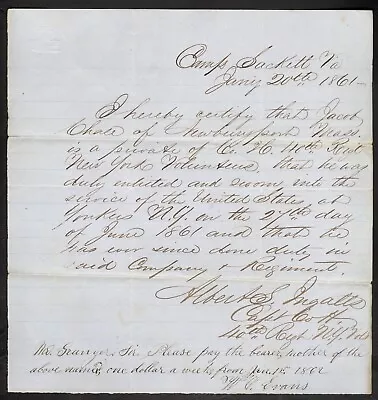 Camp Sackett Va
Jany 20th 1861
I hereby certify that Jacob
Chase of Newburyport Mass.
is a private of Co. H. 40th Regt
New York Volunteers, that he was
duly enlisted and sworn into the
service of the United States at
Yonkers N.Y. on the 27th day
of June 1861 and that he
has ever since done duty in
said Company & Regiment.
Albert S. Ingalls
Capt Co H
40th Regt N.Y. Vols
Mr. Granger Sir Please pay the bearer, mother of the
above named, one dollar a week, from Jan. 15 1862
W. C. Evans